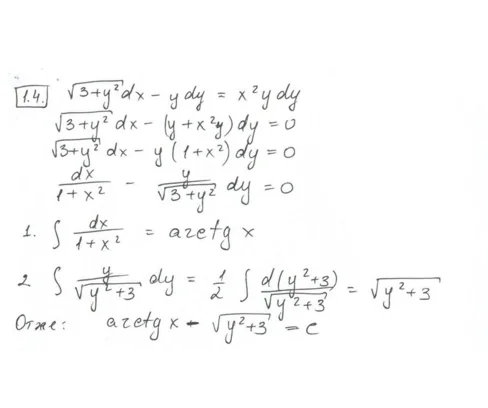 1.4. √(3+y²) dx - y dy = x² y dy
√(3+y²) dx - (y + x²y) dy = 0
√(3+y²) dx - y (1+x²) dy = 0
dx/(1+x²) - y/√(3+y²) dy = 0
1. ∫ dx/(1+x²) = arctg x
2 ∫ y/√(y²+3) dy = 1/2 ∫ d(y²+3)/√(y²+3) = √(y²+3)
Отже: arctg x - √(y²+3) = c